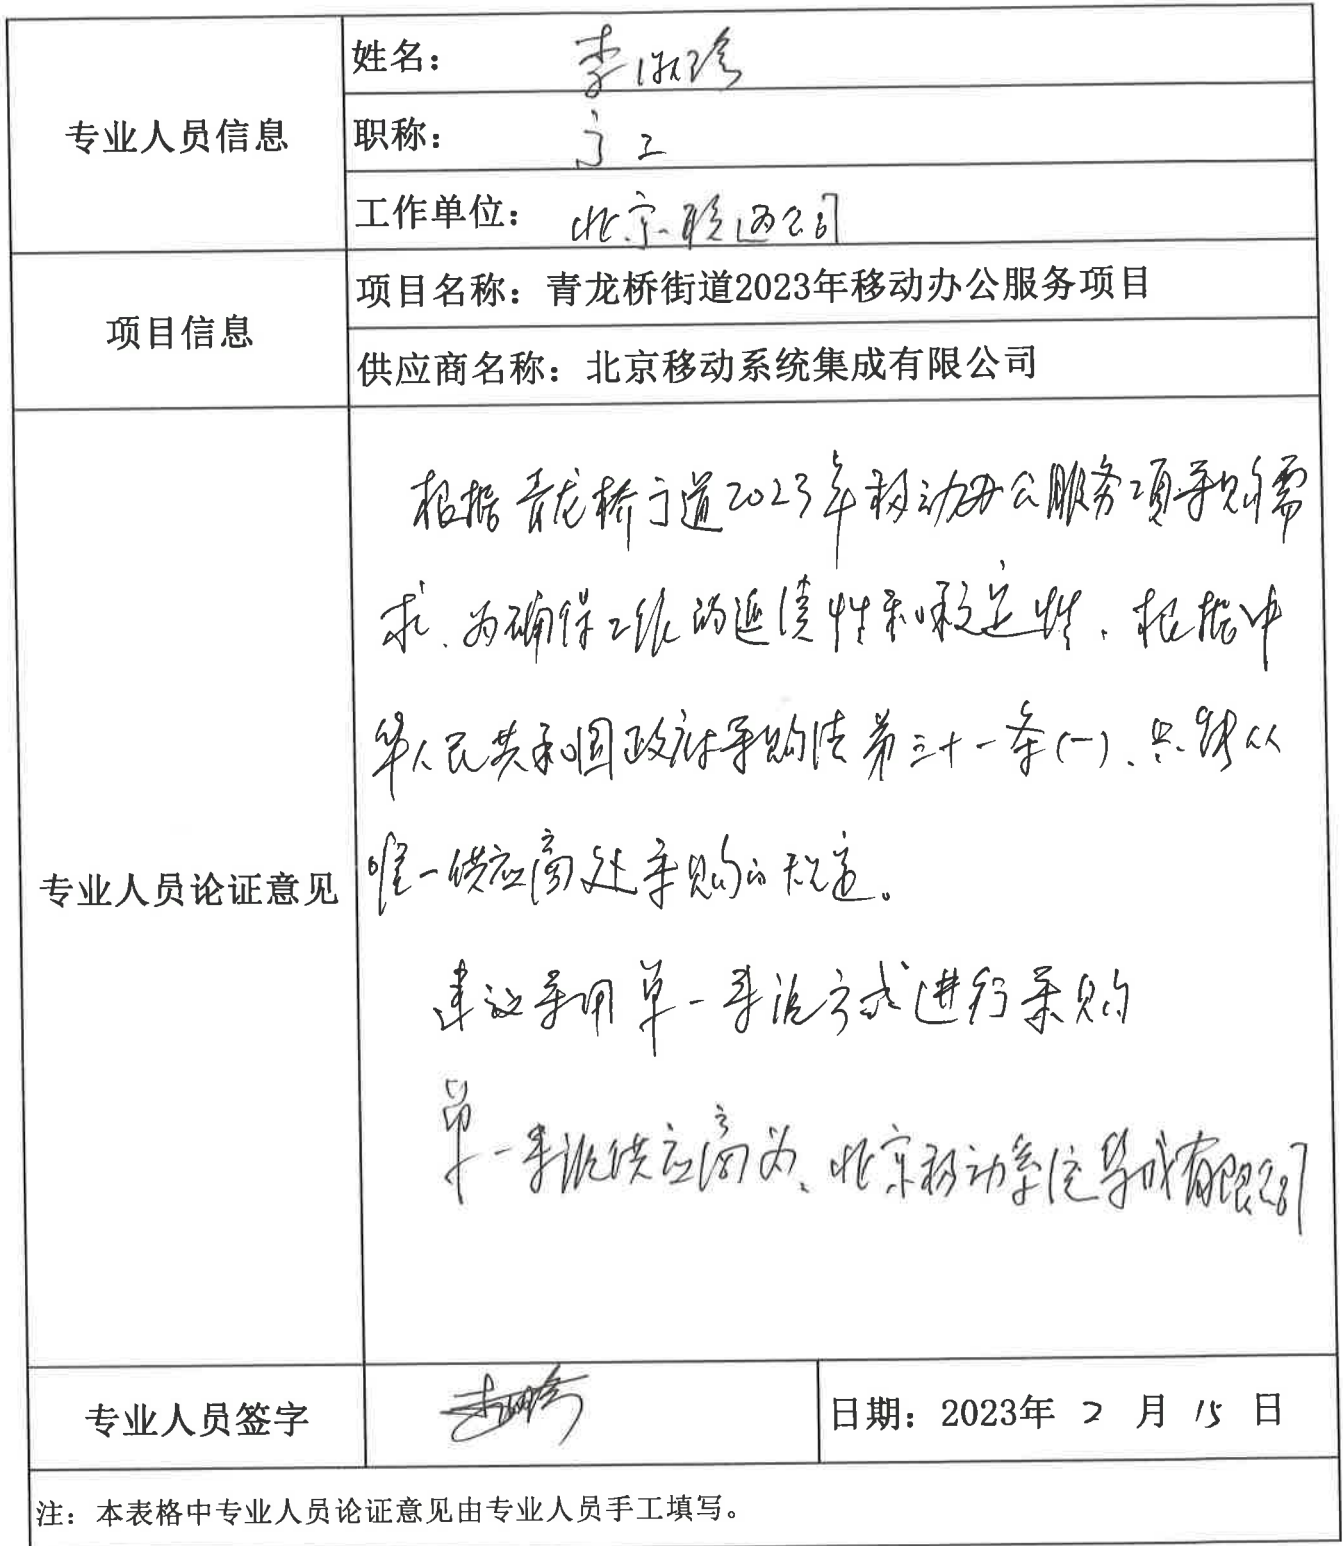 专业人员信息
姓名：李淑珍
职称：高工
工作单位：北京联通公司
项目信息
项目名称：青龙桥街道2023年移动办公服务项目
供应商名称：北京移动系统集成有限公司
专业人员论证意见
根据青龙桥街道2023年移动办公服务项采购需
求、为确保工作的延续性和稳定性，根据中
华人民共和国政府采购法第三十一条(一)、只能从
唯一供应商处采购的规定。
建议采用单一来源方式进行采购
单一来源供应商为：北京移动系统集成有限公司
专业人员签字
日期：2023年 2 月 15 日
注：本表格中专业人员论证意见由专业人员手工填写。